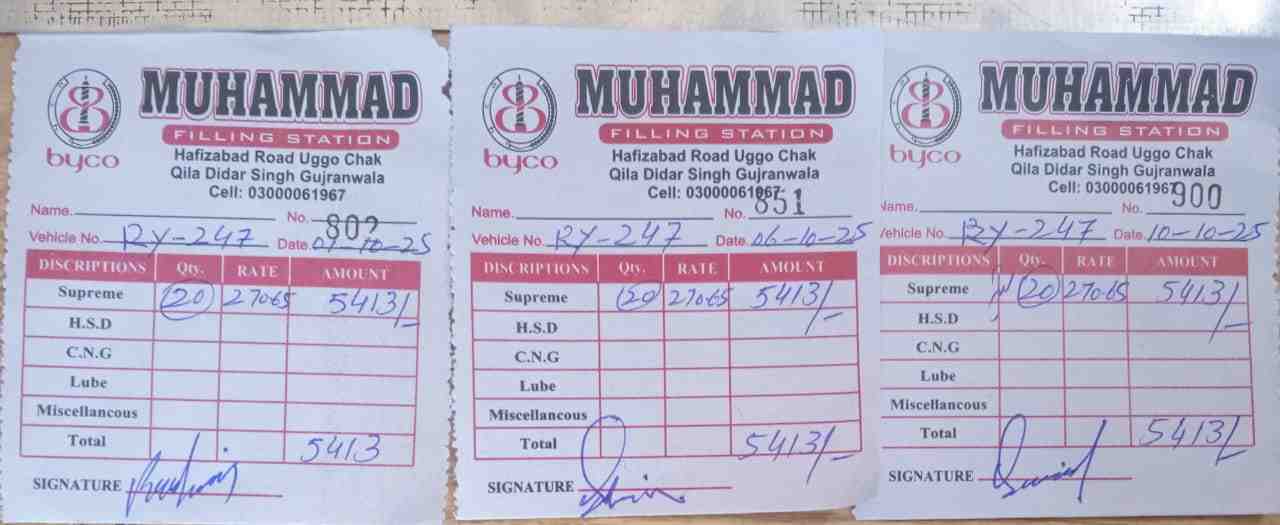 MUHAMMAD
FILLING STATION
byco
Hafizabad Road Uggo Chak
Qila Didar Singh Gujranwala
Cell: 03000061967
Name.
No. 802
Vehicle No. RY-247 Date 01-10-25
DISCRIPTIONS Qty. RATE AMOUNT
Supreme 20 270.65 5413/-
H.S.D
C.N.G
Lube
Miscellancous
Total 5413
SIGNATURE
MUHAMMAD
FILLING STATION
byco
Hafizabad Road Uggo Chak
Qila Didar Singh Gujranwala
Cell: 03000061967
Name.
No. 851
Vehicle No. RY-247 Date. 06-10-25
DISCRIPTIONS Qty. RATE AMOUNT
Supreme 20 270.65 5413/-
H.S.D
C.N.G
Lube
Miscellancous
Total 5413/-
SIGNATURE
MUHAMMAD
FILLING STATION
byco
Hafizabad Road Uggo Chak
Qila Didar Singh Gujranwala
Cell: 03000061967
Name.
No. 900
Vehicle No. RY-247 Date. 10-10-25
DISCRIPTIONS Qty. RATE AMOUNT
Supreme 20 270.65 5413/-
H.S.D
C.N.G
Lube
Miscellancous
Total 5413/-
SIGNATURE